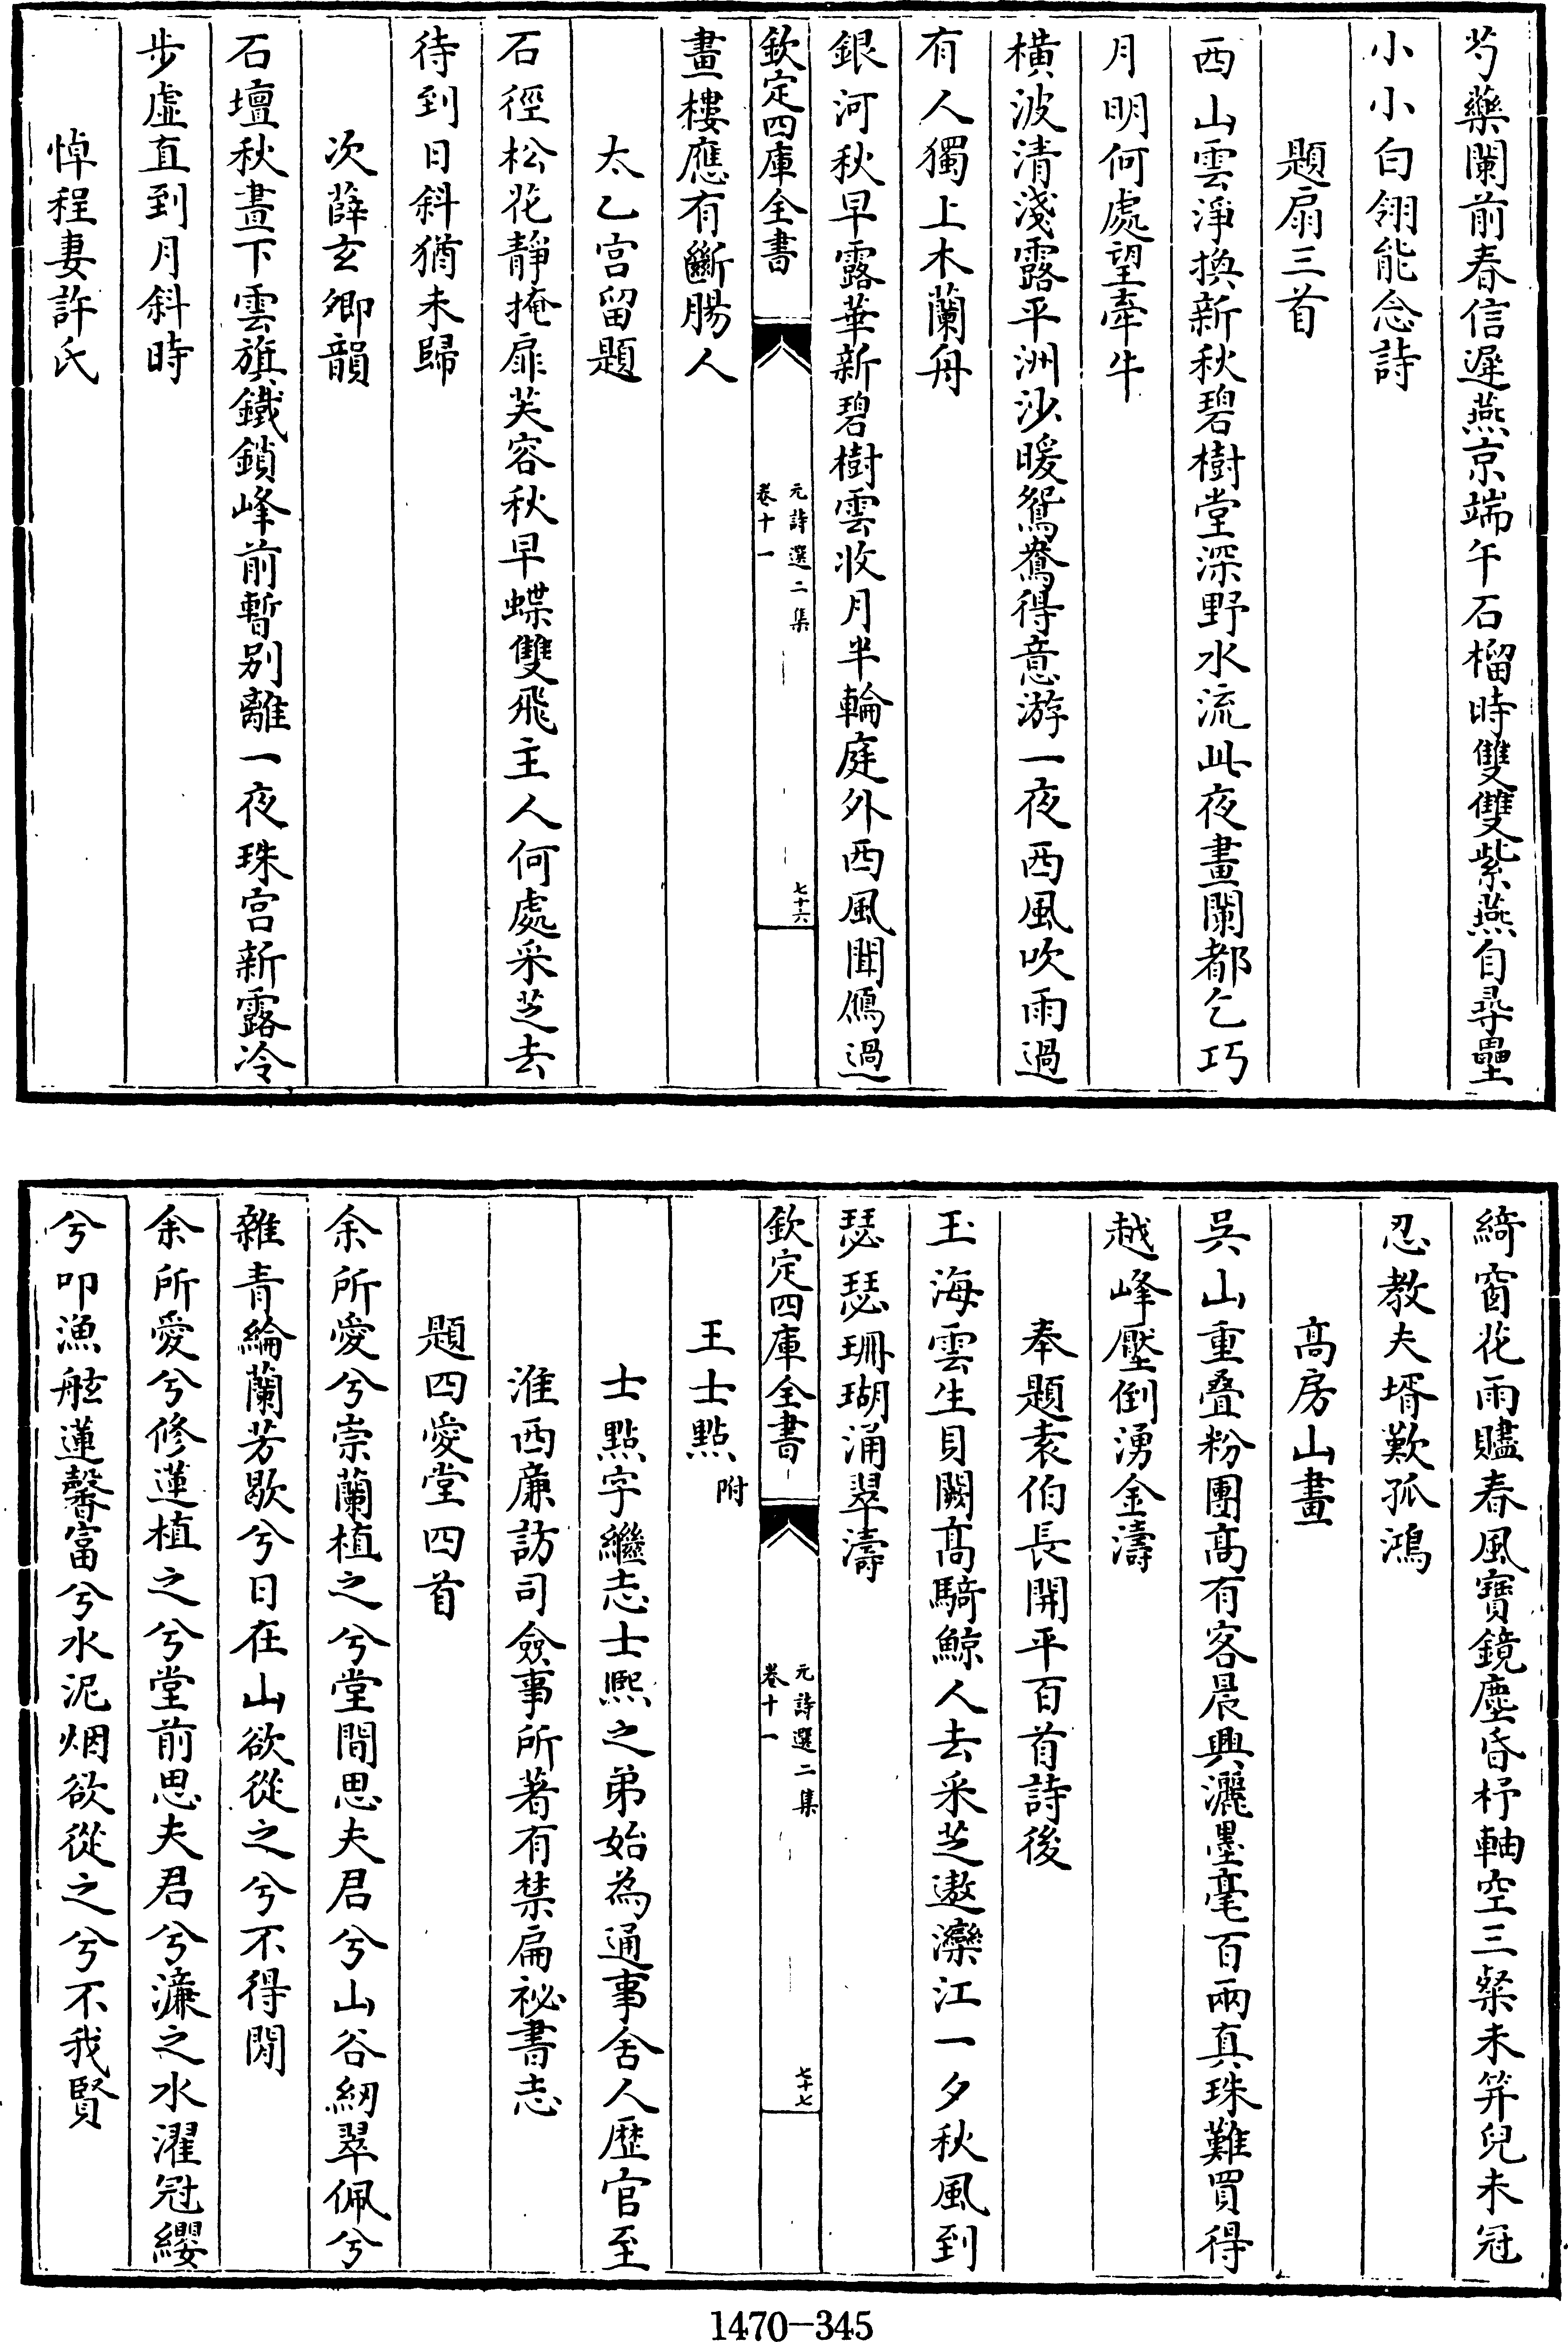 芍藥闌前春信遲燕京端午石榴時雙雙紫燕自尋壘
小小白翎能念詩
題扇三首
西山雲淨換新秋碧樹堂深野水流此夜畫闌都乞巧
月明何處望牽牛
橫波清淺露平洲沙暖鴛鴦得意游一夜西風吹雨過
有人獨上木蘭舟
銀河秋早露華新碧樹雲收月半輪庭外西風聞鴈過
欽定四庫全書
元詩選二集
卷十一
七十六
畫樓應有斷腸人
太乙宮留題
石徑松花靜掩扉芙容秋早蝶雙飛主人何處采芝去
待到日斜猶未歸
次薛玄卿韻
石壇秋晝下雲旗鐵鎖峰前暫别離一夜珠宮新露冷
步虛直到月斜時
悼程妻許氏
綺窗花雨贐春風寶鏡塵昏杼軸空三粲未筓兒未冠
忍教夫壻歎孤鴻
髙房山畫
吳山重叠粉團髙有客晨興灑墨毫百兩真珠難買得
越峰壓倒湧金濤
奉題袁伯長開平百首詩後
玉海雲生貝闕髙騎鯨人去采芝遨灤江一夕秋風到
瑟瑟珊瑚涌翠濤
欽定四庫全書
元詩選二集
卷十一
七十七
王士點附
士點字繼志士熙之弟始為通事舍人歴官至
淮西廉訪司僉事所著有禁扁祕書志
題四愛堂四首
余所愛兮崇蘭植之兮堂間思夫君兮山谷紉翠佩兮
雜青綸蘭芳歇兮日在山欲從之兮不得閒
余所愛兮修蓮植之兮堂前思夫君兮濂之水濯冠纓
兮叩漁舷蓮馨富兮水泥烟欲從之兮不我賢
1470-345